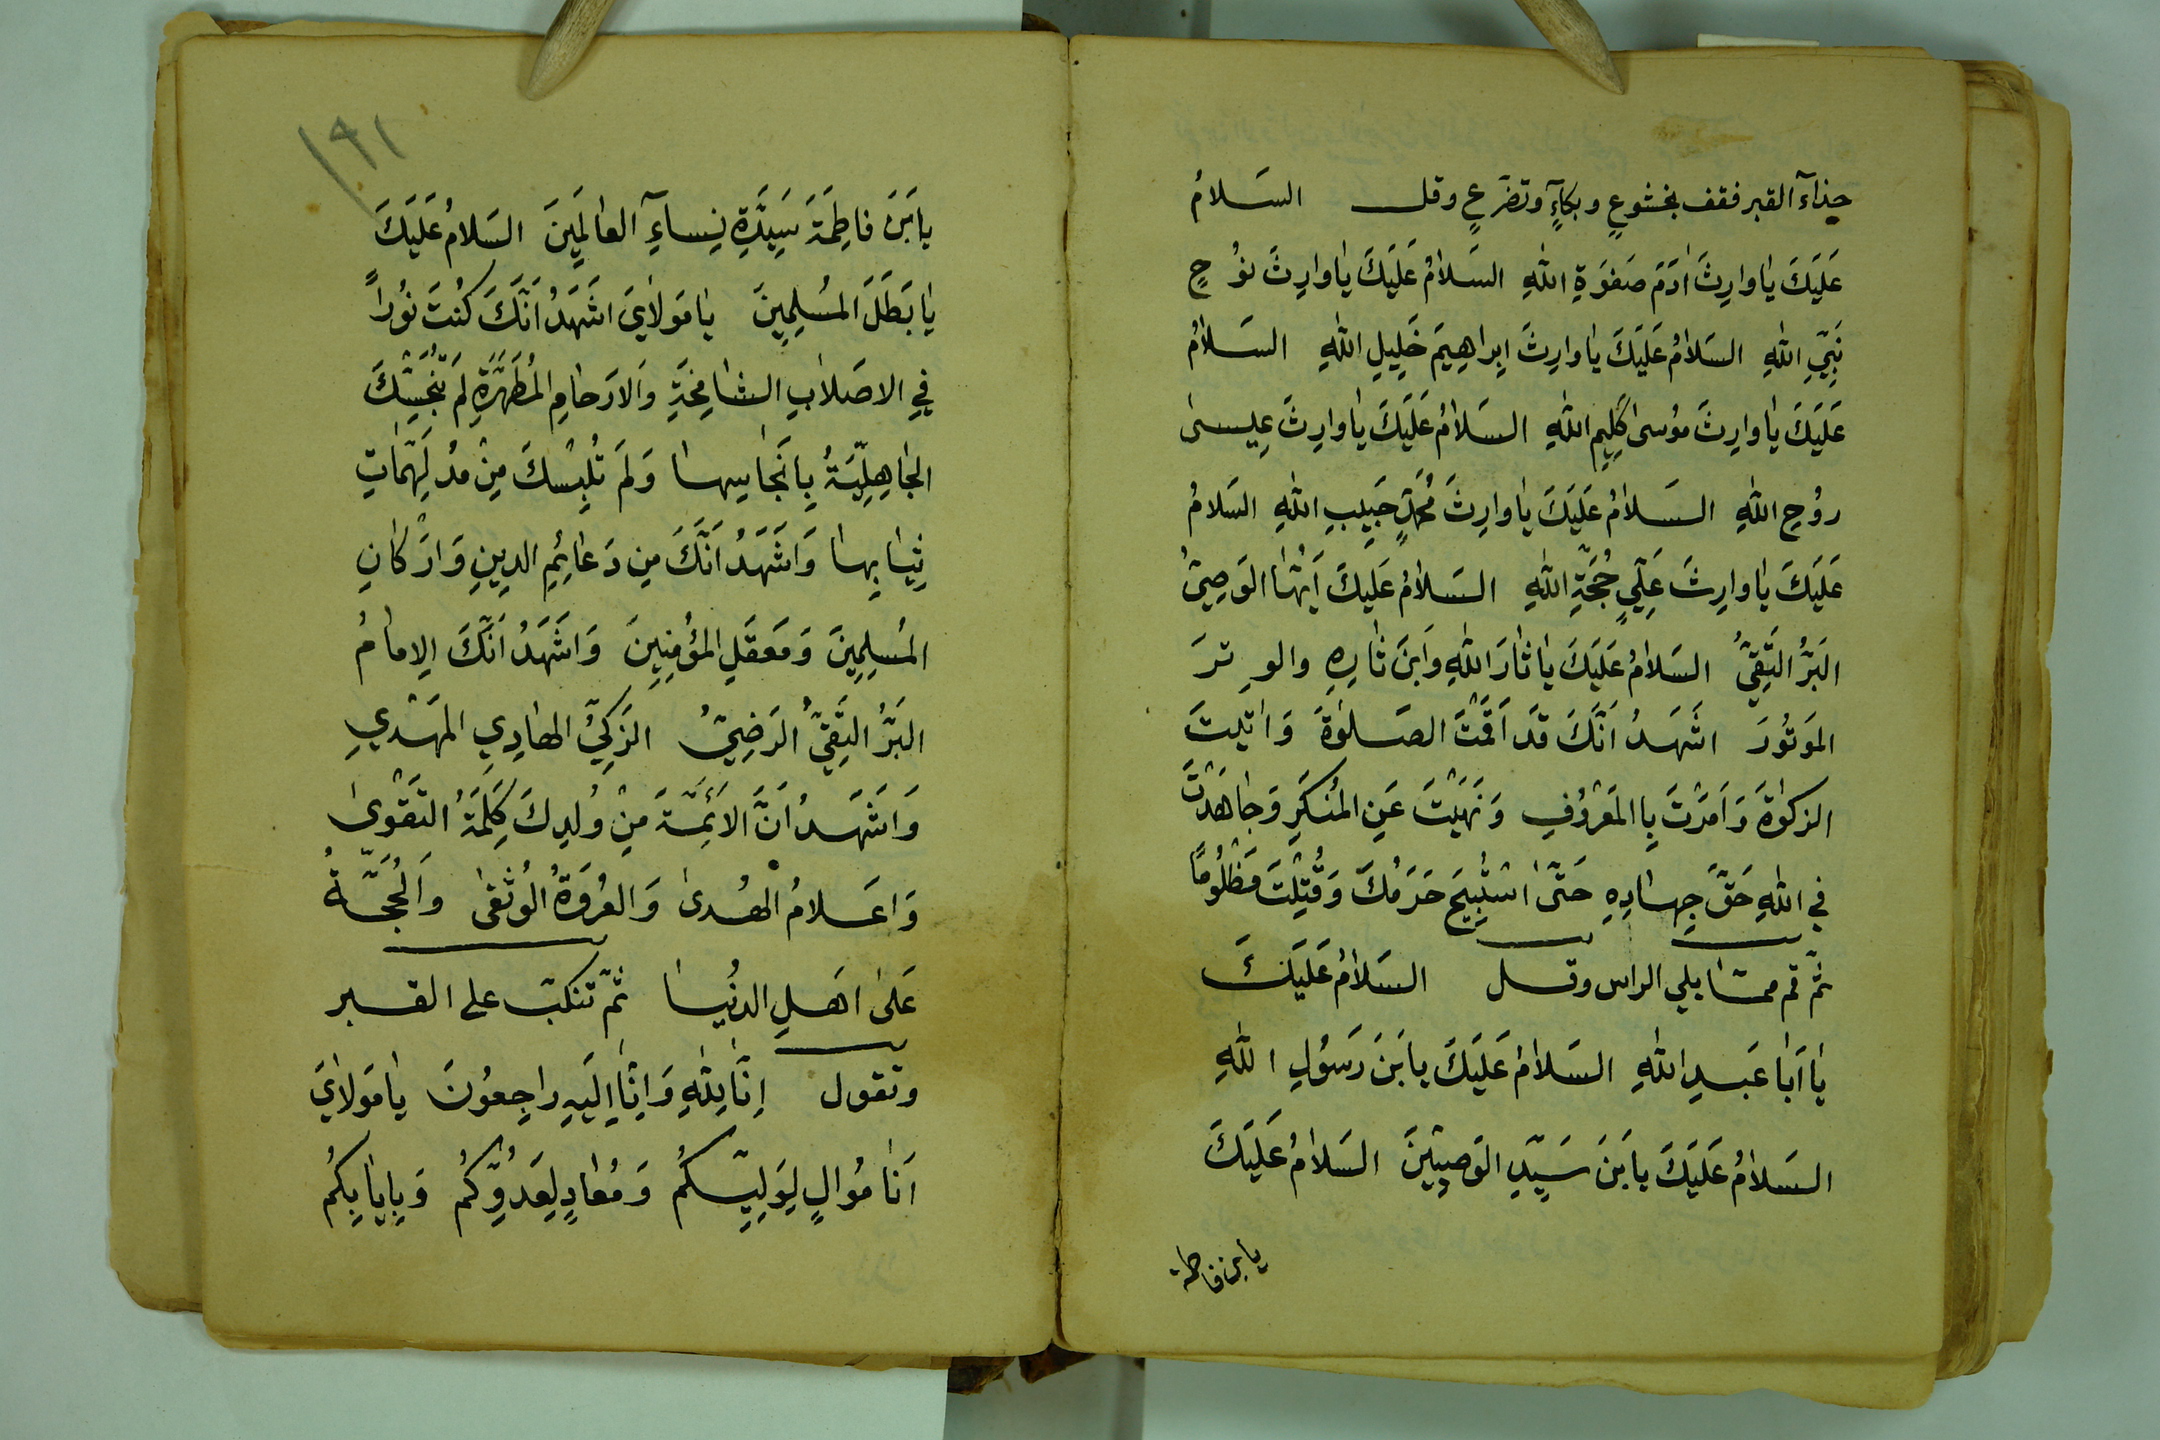 حِذاءَ القبر فقف بخشوعٍ وبكاءٍ وتضرّعٍ وقل السَلامُ
عَلَيْكَ يٰا وارِثَ اٰدَمَ صَفْوَةِ اللّٰهِ السَلٰامُ عَلَيْكَ يٰا وارِثَ نُوْحٍ
نَبِيِّ اللّٰهِ السَلٰامُ عَلَيْكَ يٰا وارِثَ اِبراهِيمَ خَلِيلِ اللّٰهِ السَلٰامُ
عَلَيْكَ يٰا وارِثَ مُوْسىٰ كَلِيمِ اللّٰهِ السَلٰامُ عَلَيْكَ يٰا وارِثَ عِيسىٰ
رُوْحِ اللّٰهِ السَلٰامُ عَلَيْكَ يٰا وارِثَ مُحَمَّدٍ حَبِيبِ اللّٰهِ السَلامُ
عَلَيْكَ يٰا وارِثَ عَلِيٍّ حُجَّةِ اللّٰهِ السَلٰامُ عَلَيكَ اَيُّهَا الوَصِيُّ
البَرُّ التَقِيُّ السَلٰامُ عَلَيْكَ يٰا ثٰارَ اللّٰهِ وَابْنَ ثٰارِهِ والوِترَ
المَوتُورَ اَشْهَدُ اَنَّكَ قَدْ اَقَمْتَ الصَلٰوةَ وَاٰتَيتَ
الزكوٰةَ وَاَمَرْتَ بِالمَعْرُوْفِ وَنَهَيْتَ عَنِ المُنكَرِ وَجٰاهَدْتَ
في اللّٰهِ حَقَّ جِهادِهِ حَتّىٰ اسْتُبِيحَ حَرَمُكَ وَقُتِلْتَ مَظْلُومًا
ثمّ قم ممّا يلي الراس وقل السَلٰامُ عَلَيْكَ
يٰا اَبٰا عَبدِ اللّٰهِ السَلٰامُ عَلَيْكَ يا بْنَ رَسُوْلِ اللّٰهِ
السَلٰامُ عَلَيْكَ يا بْنَ سَيِّدِ الوَصِيّينَ السَلٰامُ عَلَيْكَ
يا بن فاطمة
١٩١
يا بْنَ فاطِمَةَ سَيِّدَةِ نِساءِ العٰالَمِينَ السَلامُ عَلَيْكَ
يٰا بَطَلَ المُسْلِمِينَ يٰا مَولٰايَ اَشْهَدُ اَنَّكَ كُنتَ نُوْراً
فِي الاصْلٰابِ الشٰامِخَةِ وَالارْحٰامِ المُطَهَّرَةِ لَمْ تُنَجِّسْكَ
الجٰاهِلِيَّةُ بِاَنْجٰاسِها وَلَمْ تُلبِسْكَ مِنْ مُدْلَهِمّٰاتِ
ثِيٰابِها وَاَشْهَدُ اَنَّكَ مِن دَعٰائِمِ الدِينِ وَاَرْكٰانِ
المُسْلِمِينَ وَمَعقَلِ المُؤْمِنِينَ وَاَشْهَدُ اَنَّكَ الاِمٰامُ
البَرُّ التَقِيُّ الرَضِيُّ الزَكِيُّ الهٰادِي المَهْدِي
وَاَشْهَدُ اَنَّ الاَئِمَّةَ مِنْ وُلدِكَ كَلِمَةُ التَقْوىٰ
وَاَعْلامُ الهُدىٰ وَالعُرْوَةُ الوُثْقىٰ وَالحُجَّةُ
عَلىٰ اَهْلِ الدُنْيٰا ثمّ تنكبّ على القبر
وتقول اِنّٰا لِلّٰهِ وَاِنّٰا اِلَيْهِ راجِعُوْنَ يٰا مَولٰايَ
اَنَا مُوٰالٍ لِوَلِيِّكُمْ وَمُعٰادٍ لِعَدُوِّكُمْ وَبِاِيٰابِكُمْ